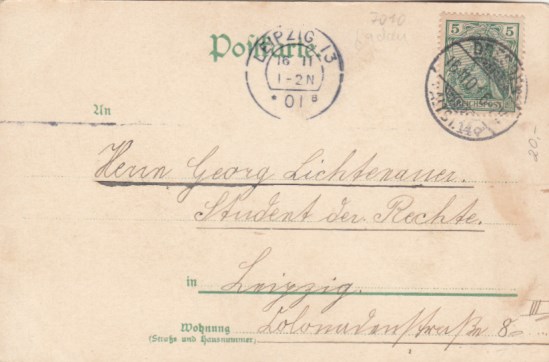 7010
Postkarte
LEIPZIG 13
16 11
1-2N
* 01 B
5
5
DRESDEN
16.11.01
ALTST. 14
20,-
An
Herrn Georg Lichtenauer.
Student der Rechte.
in Leipzig.
III
Wohnung Colonadenstraße 8
(Straße und Hausnummer)